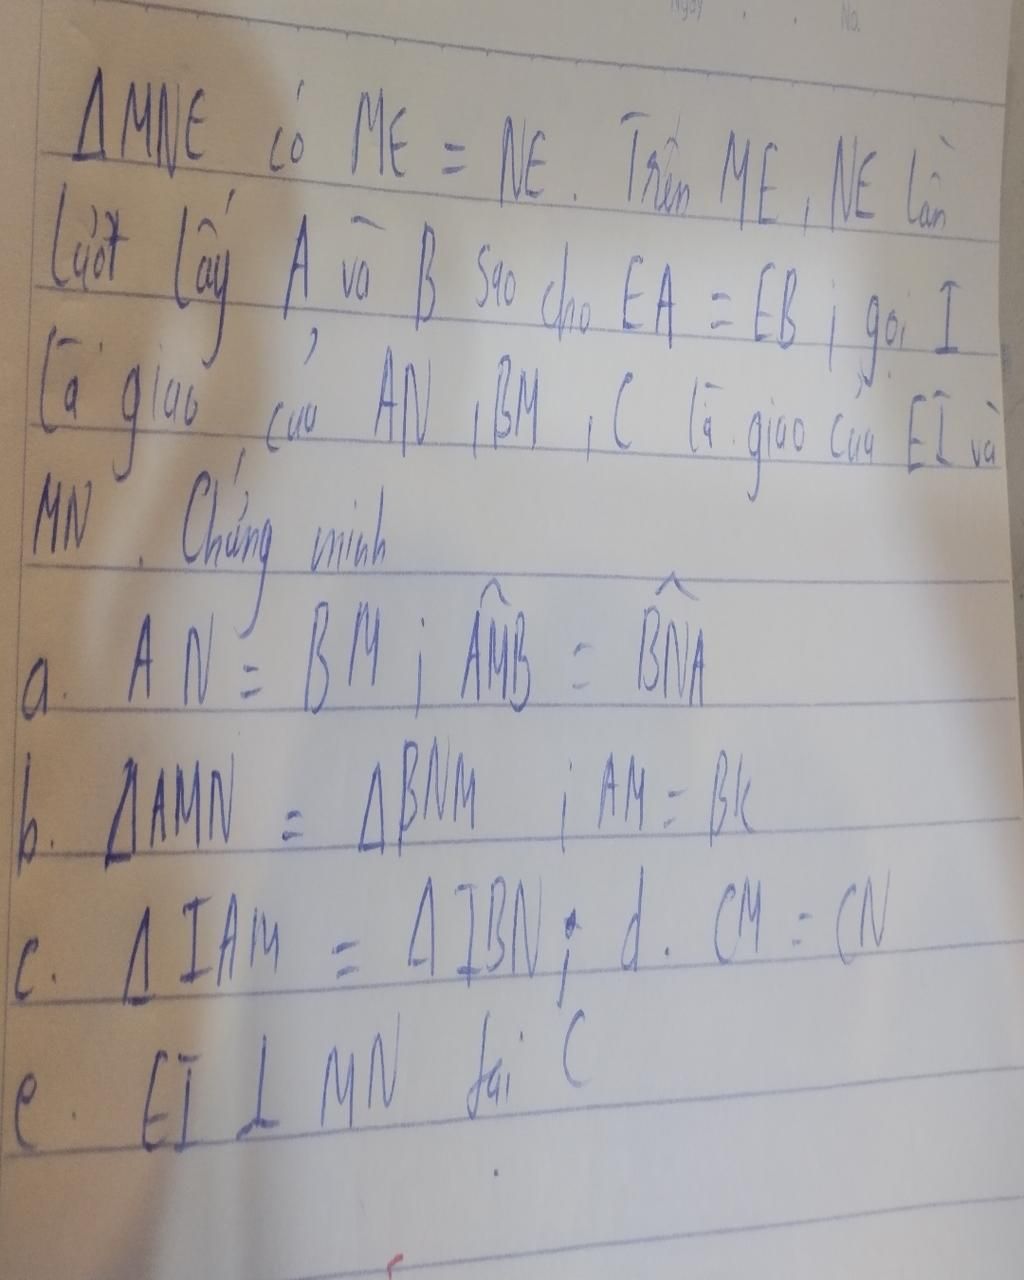 Ngày . . No.
ΔMNE có ME = NE. Trên ME, NE lần
lượt lấy A và B sao cho EA = EB; gọi I
là giao của AN, BM, C là giao của EI và
MN. Chứng minh
a. AN = BM; \widehat{AMB} = \widehat{BNA}
b. ΔAMN = ΔBNM; AM = BK
c. ΔIAM = ΔIBN; d. CM = CN
e. EI ⊥ MN tại C